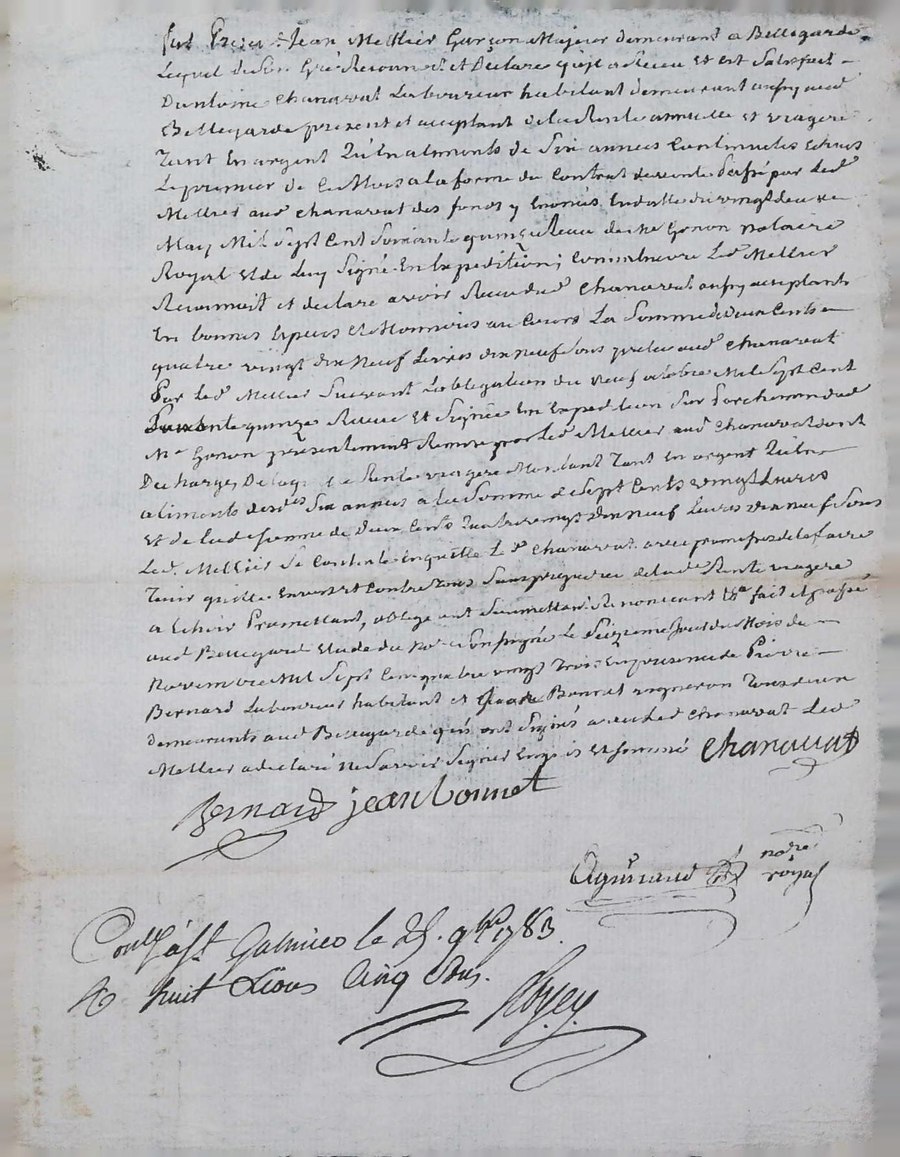 fut Present Jean Mellier Garçon Majeur demeurant a Bellegarde
Lequel de Son Gré Reconnoit et Declare qu'il a Receu et est Satisfait
D'antoine Chanavat Laboureur habitant demeurant audit
Bellegarde present et acceptant de la Rente annuelle et viagere
Tant En argent Qu'En aliments de Six années Continuelles Echues
Le premier de Ce Mois a la forme du Contrat de vente passé par Led.
Mellier aud. Chanavat des fonds y Enoncés En datte du vingt deux
May Mil Sept Cent Soixante quinze Receu de Me Gonon notaire
Royal Et de Luy Signé En Expedition; Comme Encore Led. Mellier
Reconnoit et declare avoir Receu dud. Chanavat acceptant
En bonnes Especes Et Monnoies au Cours La Somme de Deux Cents
quatre vingt dix Neuf Livres dix neuf Sous pretée aud. Chanavat
Par Led. Mellier Suivant L'obligation du neuf octobre Mil Sept Cent
Soixante quinze Receue Et Signée En Expedition Sur Parchemin dud.
Me Gonon presentement Remise par Led. Mellier aud. Chanavat dont
Decharge, De laquelle Rente viagere Montant Tant En argent Qu'En
aliments desd. Six années a La Somme de Sept Cents vingt Livres
Et de Lad. Somme de Deux Cents Quatre vingt dix Neuf Livres dix neuf Sous
Led. Mellier Se Contente En quitte Led. Chanavat avec promesse de le faire
Tenir quitte Envers et Contre Tous Sans prejudice de lad. Rente viagere
a Echoir Promettant, obligeant Soumettant Renonçant fait et passé
aud. Bellegarde Etude du Nore Soussigné Le Seizieme Jour du Mois de
Novembre Mil Sept Cent quatre vingt Trois En presence de Pierre
Bernard Laboureur habitant et Jean Bonnet vigneron Tous deux
demeurants aud. Bellegarde qui ont Signés avec led. Chanavat Led.
Mellier a declaré Ne Savoir Signer Enquis Et Sommé Chanavat
Bernard jean bonnet
notre
royal
Conllé a St. Galmier le 25. 9bre 1783.
huit Livres Cinq Sous.